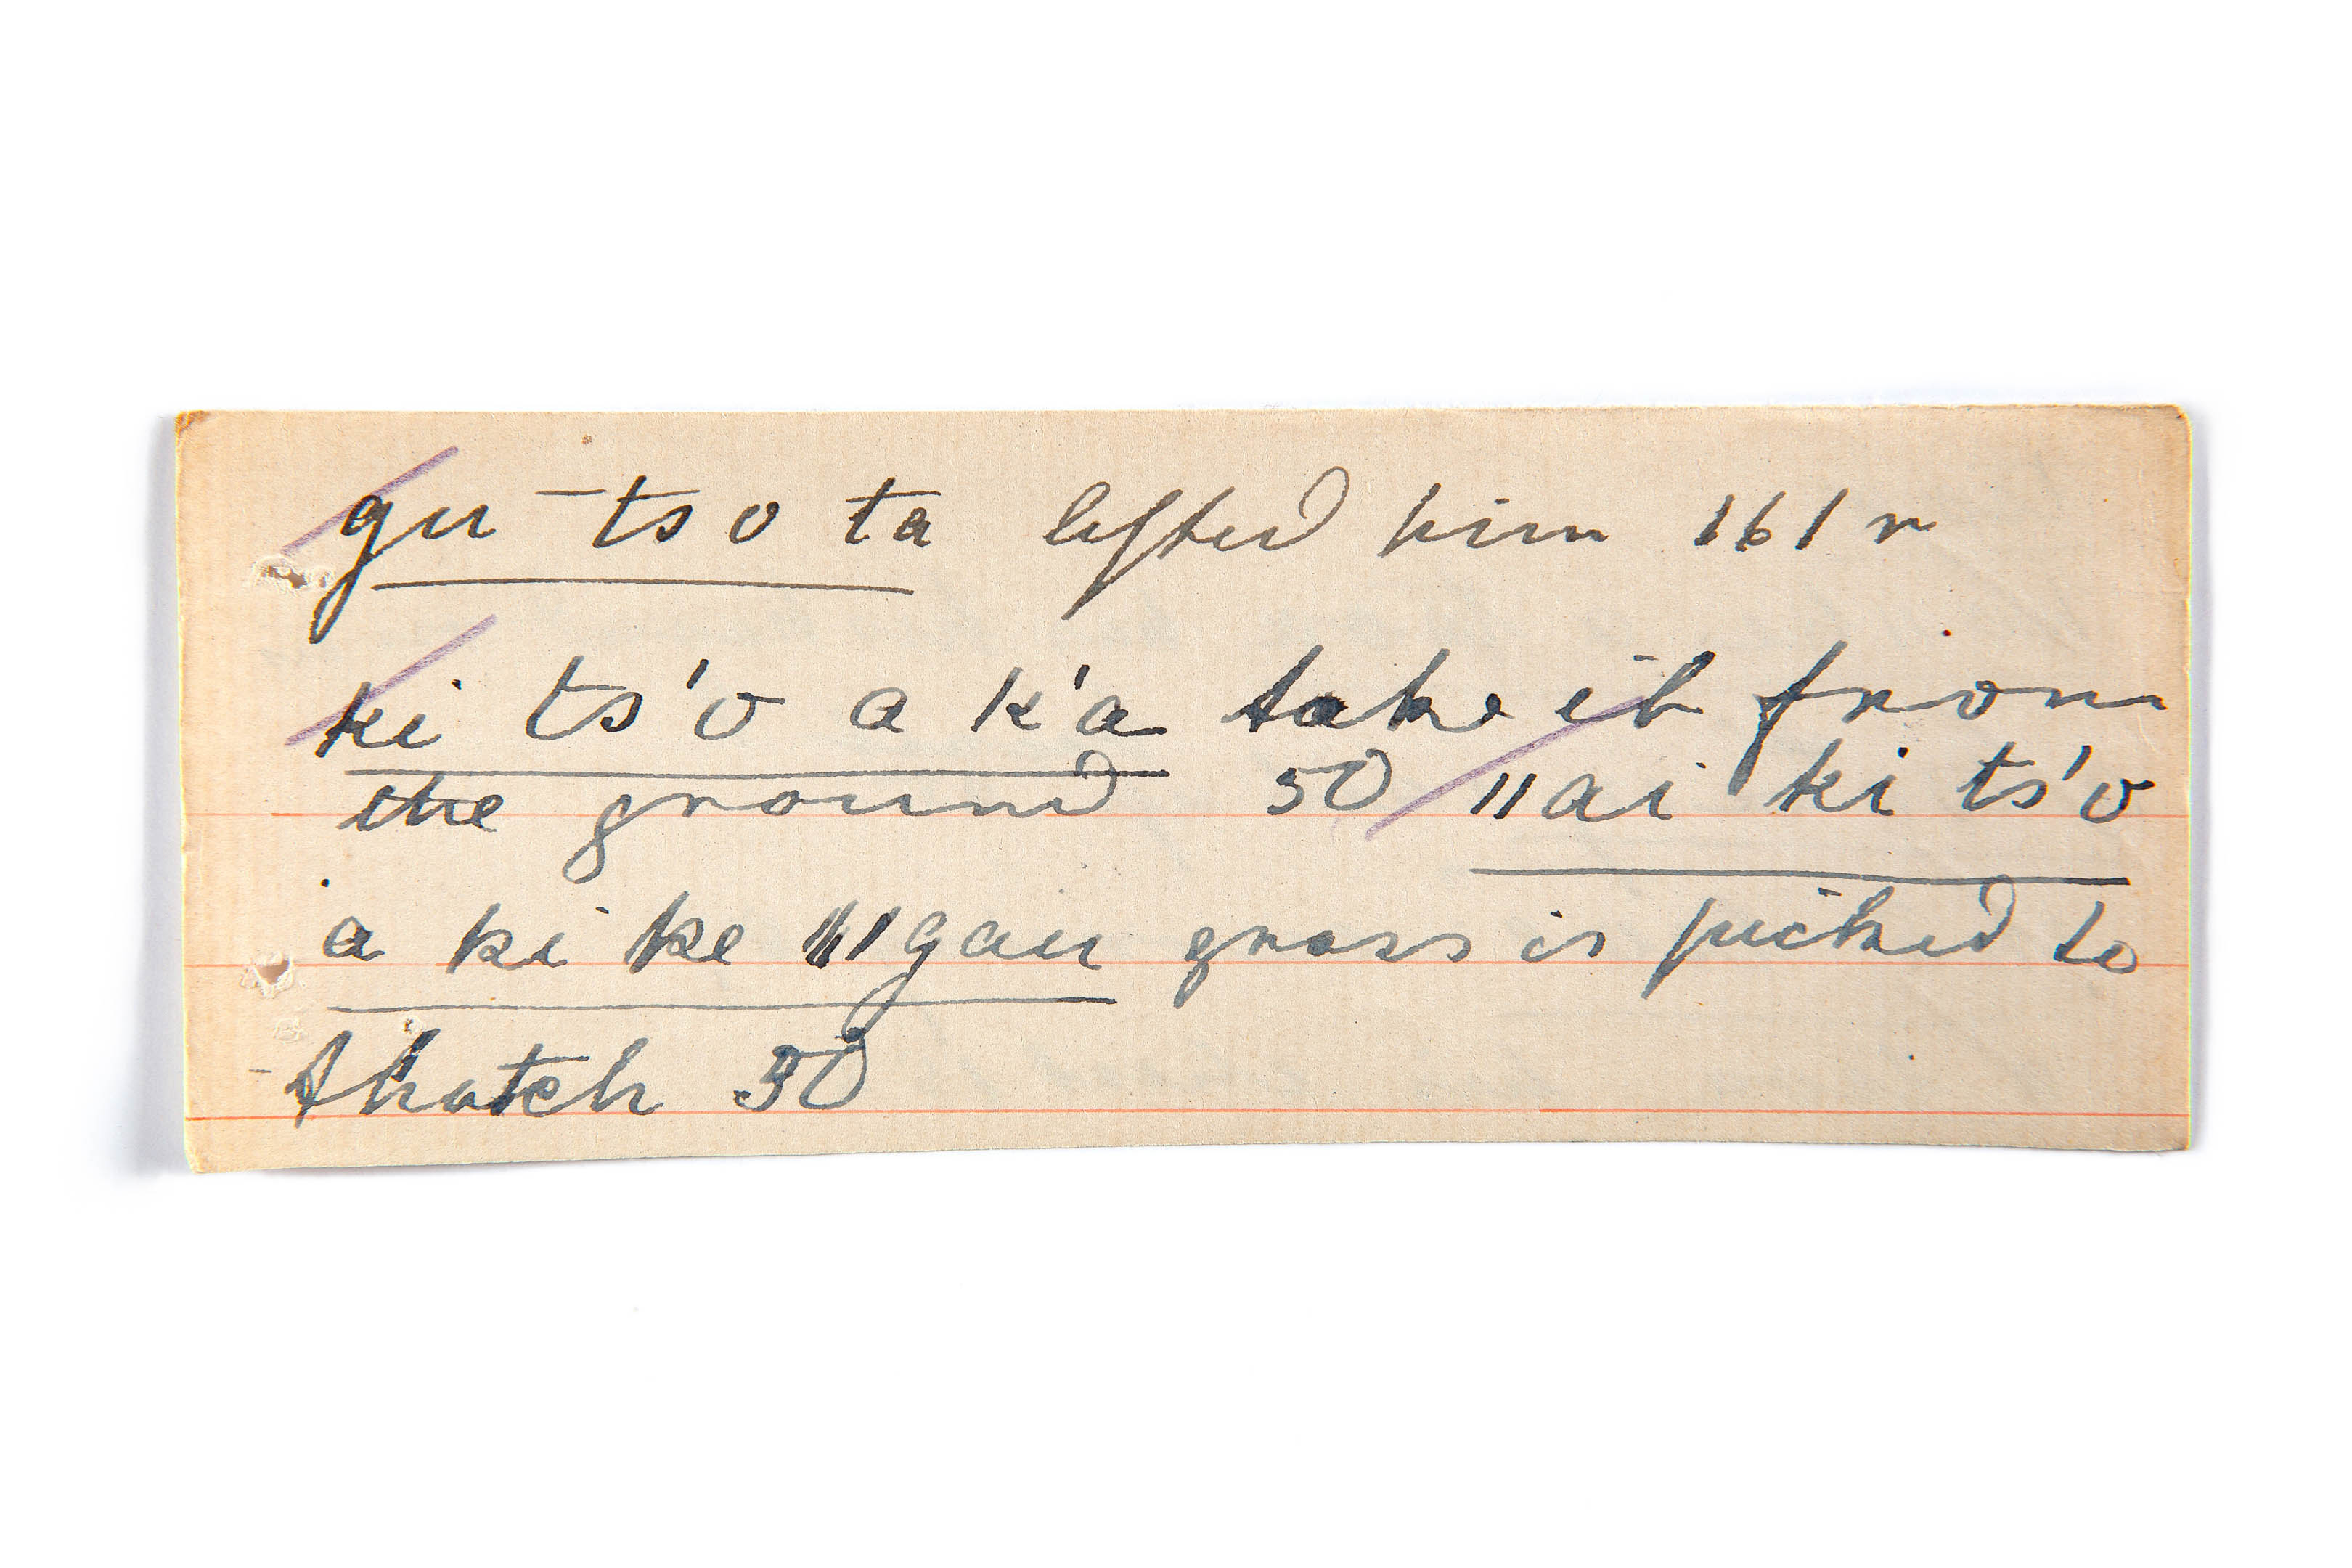 gu – ts o ta lifted him 161 r
ki ts'o a k'a take it from
the ground 50 ǁai ki ts'o
a ki ke ǁgau grass is picked to
thatch 50